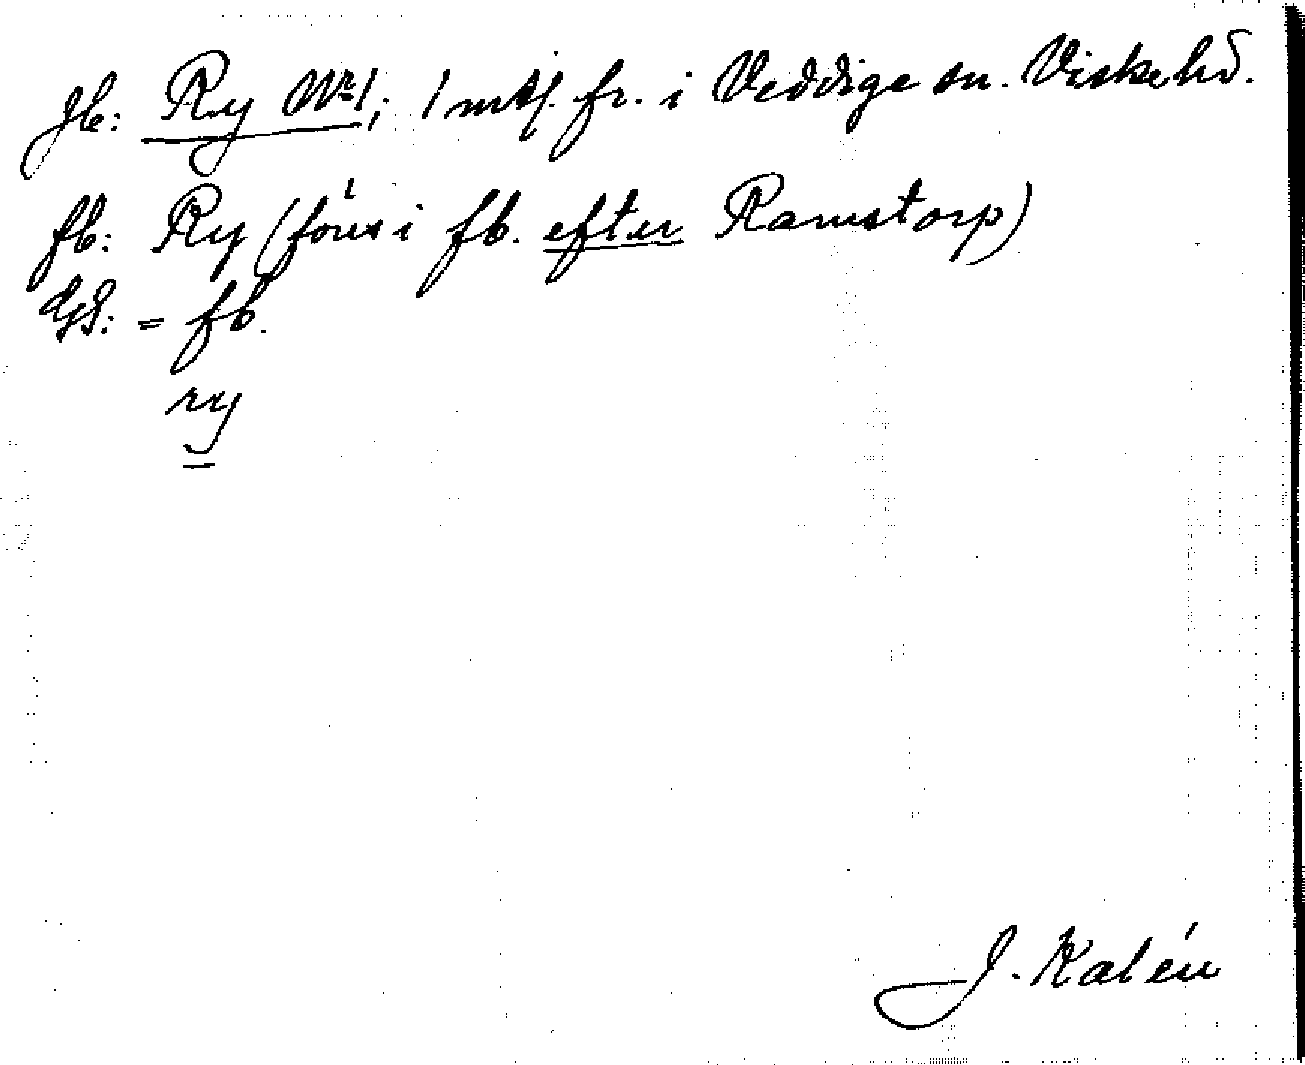 jb: Ry Nr 1; 1 mtl. fr. i Veddige sn. Viske hd.
fb: Ry (föres i fb. efter Ramstorp)
GS: = fb.
ry
J. Kalén